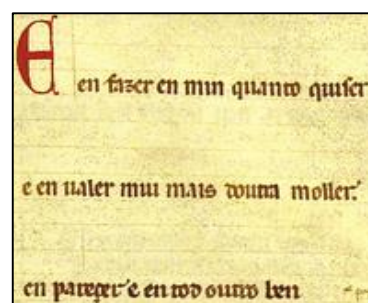 E en fazer en min quanto quiser
e en ualer mui mais doutra moller.
en pareçer e en tod outro ben